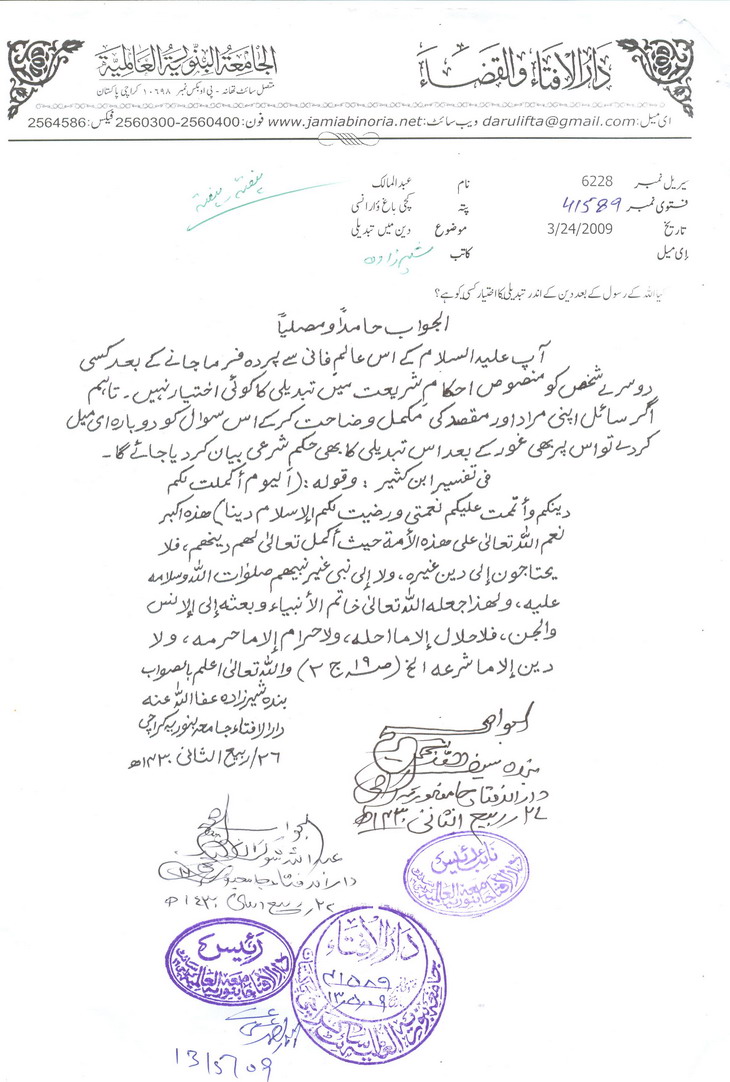 دار الافتاء والقضاء
الجامعۃ البنوریۃ العالمیۃ
متصل سائٹ تھانہ - پی او بکس نمبر ۱۰۶۹۸ کراچی پاکستان
ای میل: darulifta@gmail.com ویب سائٹ: www.jamiabinoria.net فون: 2560300-2560400 فیکس: 2564586
سیریل نمبر 6228 نام عبدالمالک
فتوی نمبر 41589 پتہ کچی باغ وارانسی
تاریخ 3/24/2009 موضوع دین میں تبدیلی
ای میل کاتب شہزادہ
اللہ کے رسول کے بعد دین کے اندر تبدیلی کا اختیار کسی کو ہے؟
الجواب حامداً ومصلیاً
آپ علیہ السلام کے اس عالمِ فانی سے پردہ فرما جانے کے بعد کسی
دوسرے شخص کو منصوص احکامِ شریعت میں تبدیلی کا کوئی اختیار نہیں۔ تاہم
اگر سائل اپنی مراد اور مقصد کی مکمل وضاحت کرکے اس سوال کو دوبارہ ای میل
کردے تو اس پر بھی غور کے بعد اس تبدیلی کا بھی حکم شرعی بیان کردیا جائے گا۔
فی تفسیر ابن کثیر: وقوله: (الیوم أکملت لکم
دینکم وأتممت علیکم نعمتی ورضیت لکم الإسلام دینا) هذه اکبر
نعم اللہ تعالیٰ علی هذه الأمة حیث أکمل تعالیٰ لهم دینهم، فلا
یحتاجون إلی دین غیره، ولا إلی نبی غیر نبیهم صلوات اللہ وسلامه
علیه، ولهذا جعله اللہ تعالیٰ خاتم الأنبیاء وبعثه إلی الإنس
والجن، فلا حلال إلا ما احله، ولا حرام إلا ما حرمه، ولا
دین إلا ما شرعه الخ (ص۱۹ ج ۲) واللہ تعالیٰ اعلم بالصواب
بندہ شہزادہ عفا اللہ عنه
دارالافتاء جامعہ بنوریہ کراچی
۲۶/ربیع الثانی ۱۴۳۰ھ
الجواب صحیح
بندہ سیف اللہ
دارالافتاء جامعہ بنوریہ
۲۷ ربیع الثانی ۱۴۳۰ھ
الجواب صحیح
عبداللہ شوکت
دارالافتاء جامعہ بنوریہ
۱۴۳۰ھ
نائب رئیس
رئیس
دار الافتاء
41589
جامعہ بنوریہ العالمیہ سائٹ کراچی
13/5/09